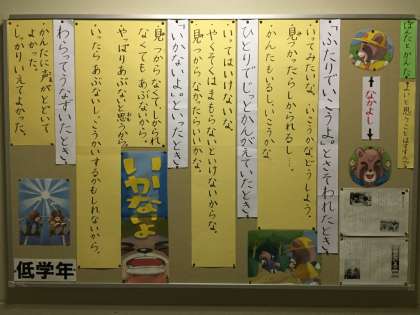 ぽんたとかんたで
よいと思ったことをはっぴょうする
なかよし
「ふたりでいこうよ。」ときそわれたとき
いってみたいな。いこうかな。どうしよう。
見つかったらしかられるし…。
かんたもいるし、いこうかな
ひとりでじっとかんがえていたとき
いってはいけないな。
やくそくはまもらないといけないからな。
見つからなかったらいいかな。
「いかないよ。」といったとき
見つからなくて、しかられ
なくてもあぶないから。
やっぱりあぶないと思うから。
いったらあぶないし、こうかいするかもしれないから。
わらってうなずいたとき
かんたに声がとどいて
よかった。
しっかりいえてよかった。
いかないよ
低学年